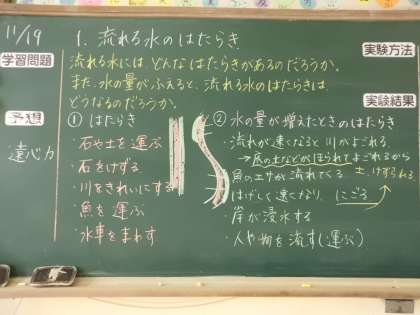 11/19
1. 流れる水のはたらき
学習問題
流れる水には、どんなはたらきがあるのだろうか。
また、水の量がふえると、流れる水のはたらきは、
どうなるのだろうか。
実験方法
実験結果
予想
遠心力
① はたらき
・石や土を運ぶ
・石をけずる
・川をきれいにする
・魚を運ぶ
・水車をまわす
② 水の量が増えたときのはたらき
・流れが速くなると川がよごれる
→底の土などがほられてよごれるから
魚のエサが流れてくる
土、けずられる
はげしく速くなり、にごる
・岸が浸水する
・人や物を流す(運ぶ)